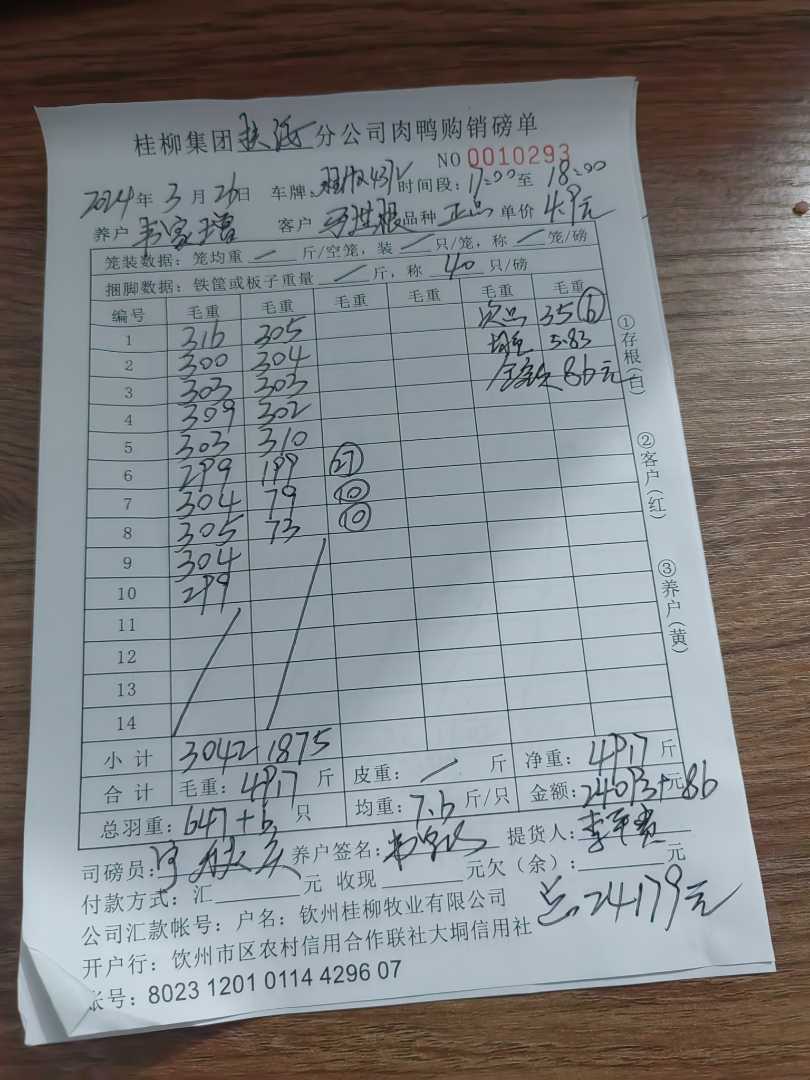 桂柳集团扶海分公司肉鸭购销磅单
NO 0010293
2024年3月26日 车牌: 时间段:17:00至18:00
养户 韦家增 客户 品种 正品 单价 4.9元
笼装数据:笼均重 / 斤/空笼,装 / 只/笼,称 / 笼/磅
捆脚数据:铁筐或板子重量 / 斤,称 40 只/磅
编号 毛重 毛重 毛重 毛重 毛重 毛重
1 316 305 次品 35 ⑥
2 300 304 均重 5.83
3 303 303 金额 86元
4 309 302
5 303 310
6 299 199 ㉗
7 304 79 ⑩
8 305 73 ⑩
9 304
10 299
11
12
13
14
小计 3042 1875
合计 毛重:4917斤 皮重: / 斤 净重:4917斤
总羽重:647+6只 均重:7.6斤/只 金额:24093元+86
司磅员: 养户签名: 提货人:
付款方式:汇 元 收现 元欠(余): 元
公司汇款帐号:户名:钦州桂柳牧业有限公司
总24179元
开户行:钦州市区农村信用合作联社大垌信用社
帐号:8023 1201 0114 4296 07
①存根(白)
②客户(红)
③养户(黄)